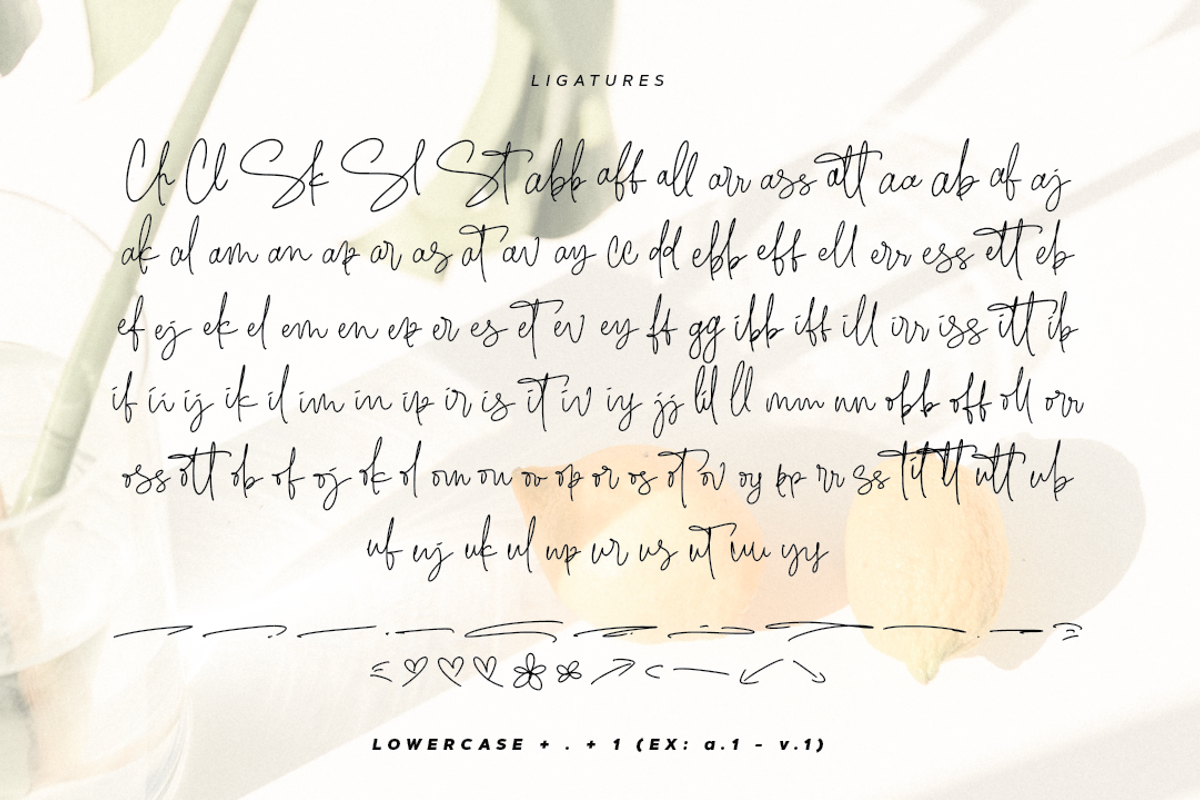 LIGATURES
Ch Cl Sk Sl St abb aff all arr ass att aa ab af aj
ak al am an ap ar as at av ay cc dd ebb eff ell err ess ett eb
ef ej ek el em en ep er es et ev ey ff gg ibb iff ill irr iss itt ib
if ii ij ik il im in ip ir is it iv iy jj lil ll mm nn obb off oll orr
oss ott ob of oj ok ol om on oo op or os ot ov oy pp rr ss tit tt utt ub
uf uj uk ul up ur us ut uu yy
LOWERCASE + . + 1 (EX: a.1 - v.1)